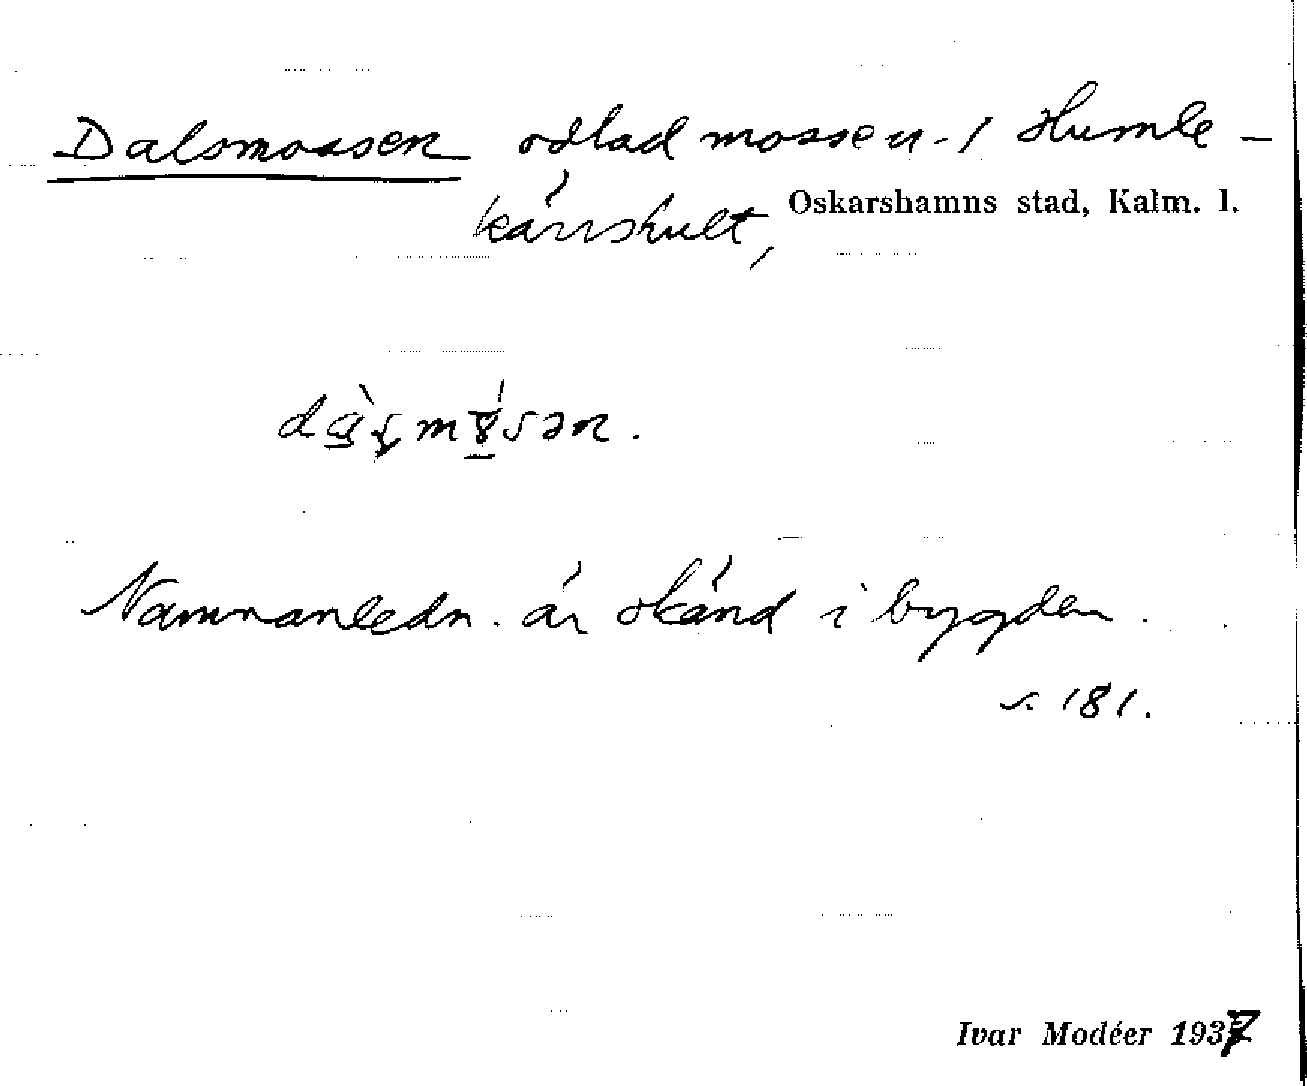 Dalsmossen odlad mossen. / Humle-
kärrshult, Oskarshamns stad, Kalm. l.
Namnanledn. är okänd i bygden.
s. 181.
Ivar Modéer 1937